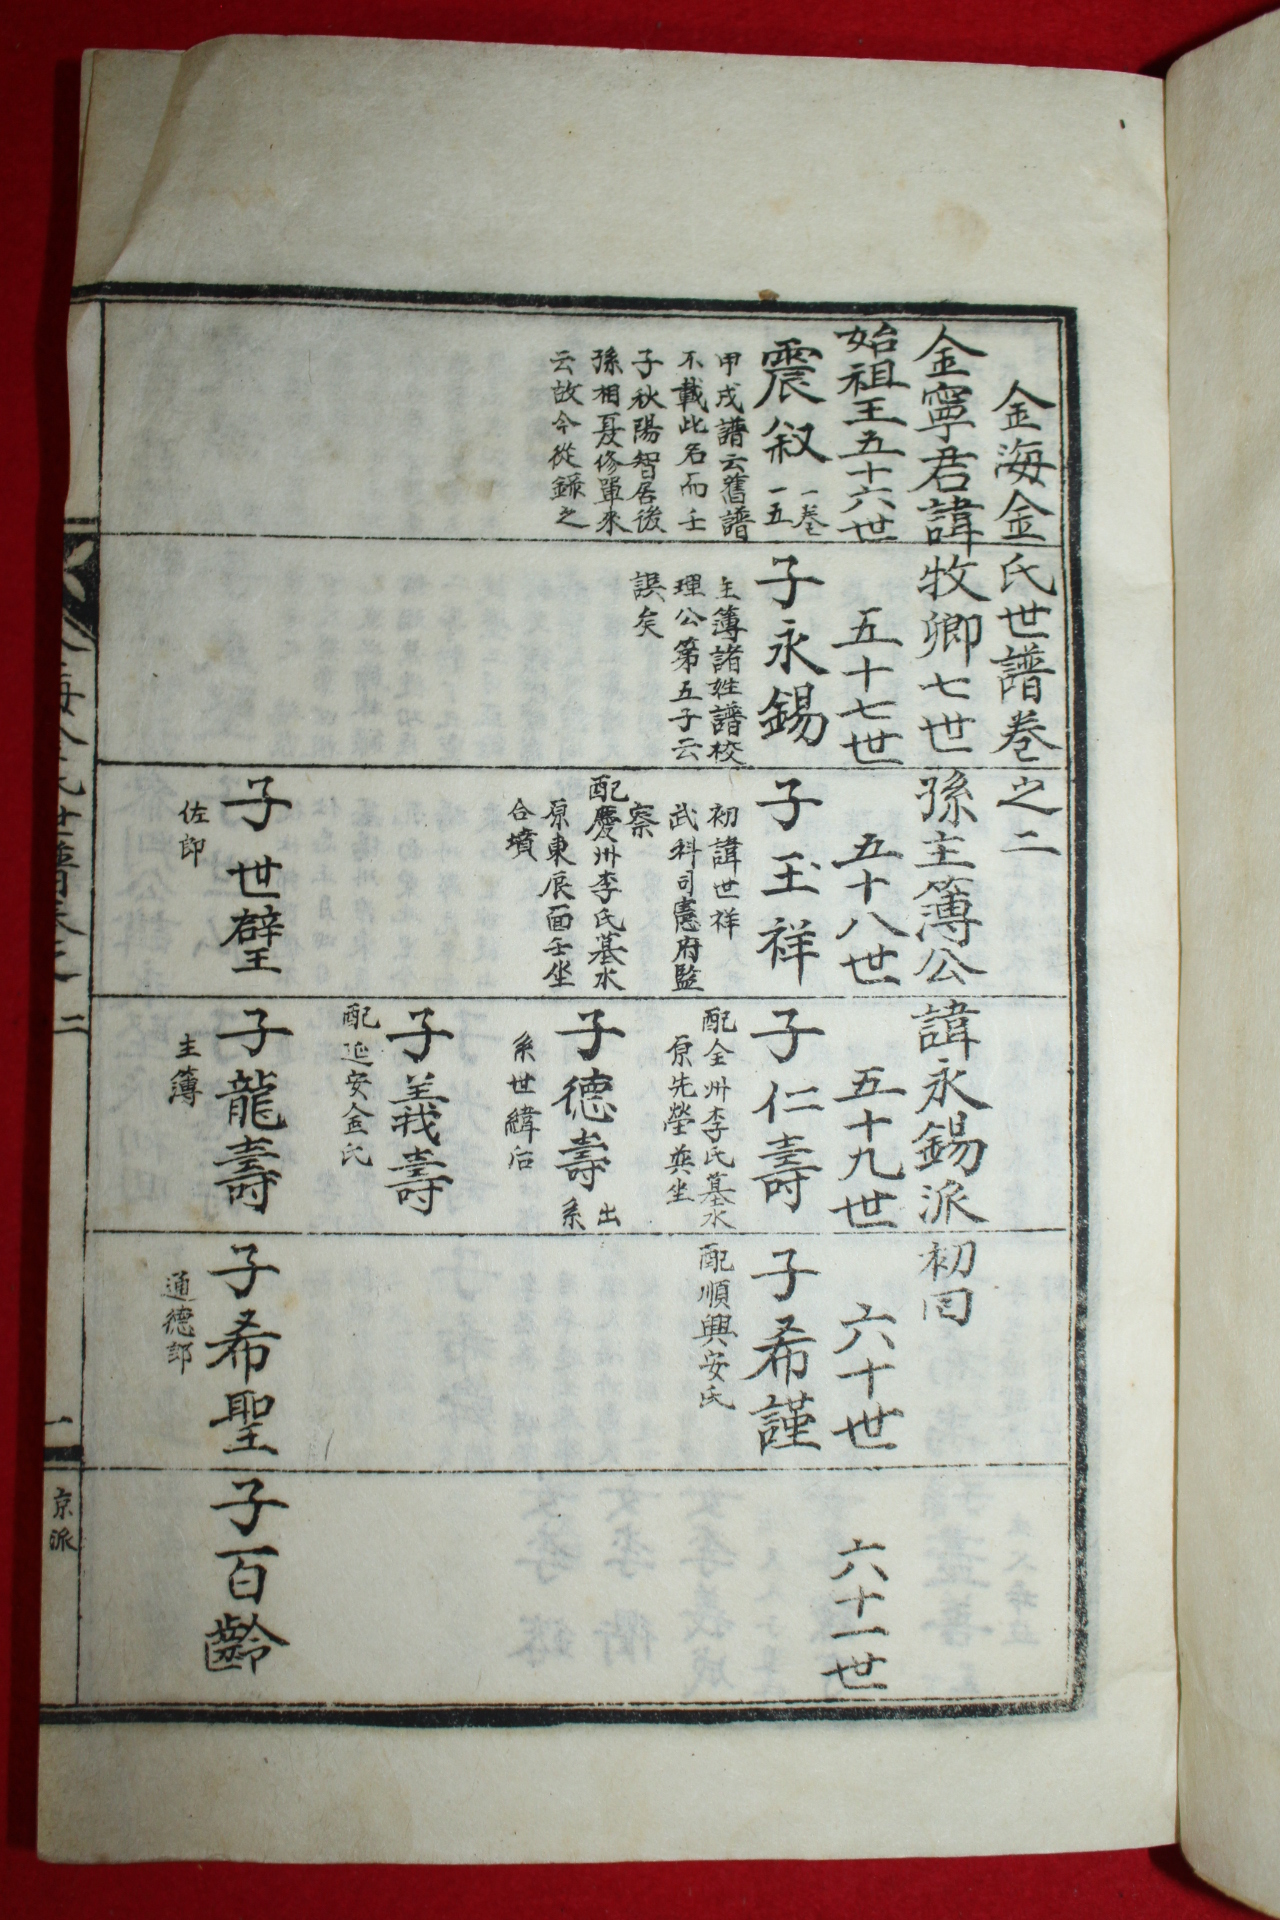 金海金氏世譜卷之二
金寧君諱牧卿七世孫主簿公諱永錫派初回
始祖王五十六世
五十七世
五十八世
五十九世
六十世
六十一世
震叙
一卷
一五
甲戌譜云舊譜
不載此名而壬
子秋陽智居後
孫相夏修單來
云故今從錄之
子永錫
主簿諸姓譜校
理公第五子云
誤矣
子玉祥
初諱世祥
武科司憲府監
察
配慶州李氏墓水
原東辰面壬坐
合墳
子世璧
佐郎
子仁壽
配全州李氏墓水
原先塋巽坐
子德壽
出
系
系世緯后
子義壽
配延安金氏
子龍壽
主簿
子希謹
配順興安氏
子希聖
通德郎
子百齡
海金氏世譜卷之二
一
京派